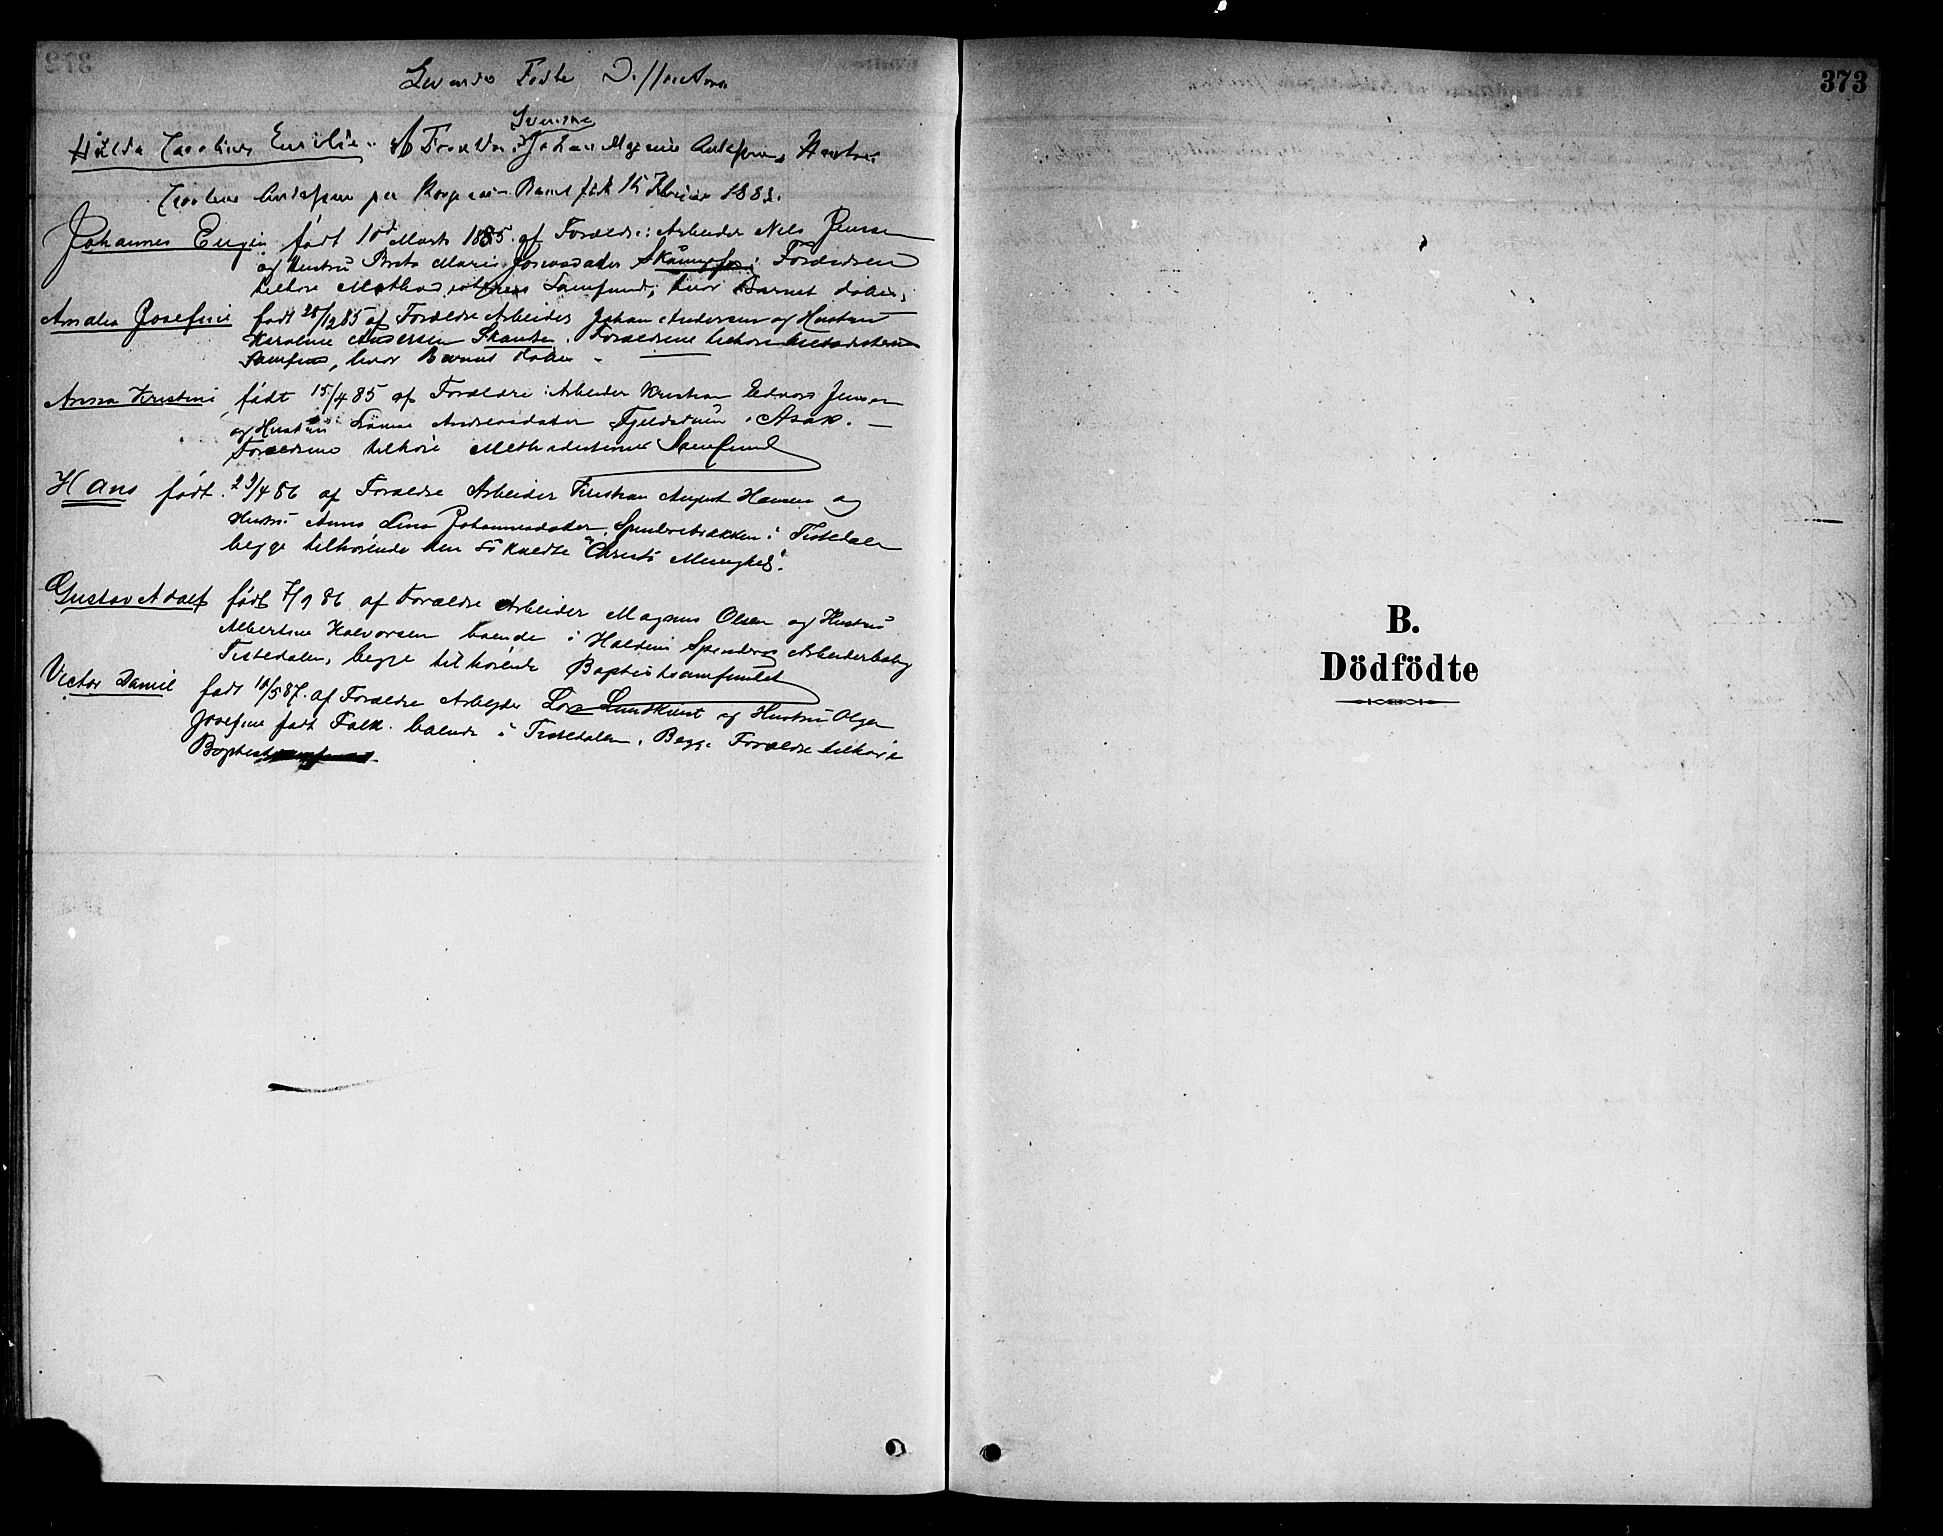 Levende Fødte Dissentere
Svenske
Hilda Caroline Emilie af Forældre Johan Magnus Andersson, Hustru
Caroline Andersson paa Barnet født 15 Februar 1883.
Johannes Eugen født 10de Marts 1885 af Forældre: Arbeider Nels Jensen
og Hustru Brita Maria Josvasdatter Forældrene
tilhøre Methodisternes Samfund, hvor Barnet døbes.
Amalia Josefine født 28/12 85 af Forældre Arbeider Johan Andersen og Hustru
Karoline Andersen Skansen. Forældrene tilhøre Metodisternes
Samfund, hvor Barnet døbes -
Anna Kristine født 15/4 85 af Forældre: Arbeider Kristian Edvard Jensen
og Hustru Andreasdatter i Asak. —
Forældrene tilhøre Methodisternes Samfund
Hans født 29/4 86 af Forældre Arbeider Kristian August Hansen og
Hustru Anna Lina Johannesdatter, i Tistedalen
begge tilhørende den så kaldte "Christi Menighed".
Gustav Adolf født 7/9 86 af Forældre Arbeider Magnus Olsen og Hustru
Albertine Halvorsen boende i Haldens Spinderis Arbeiderbolig
Tistedalen, begge tilhørende Baptistsamfundet
Victor Daniel født 10/5 87. af Forældre Arbejder Lars Lundkvist og Hustru Olga
Josefine født Falk. boende i Tistedalen. Begge Forældre tilhøre
Baptistsamfundet
373
B.
Dödfödte